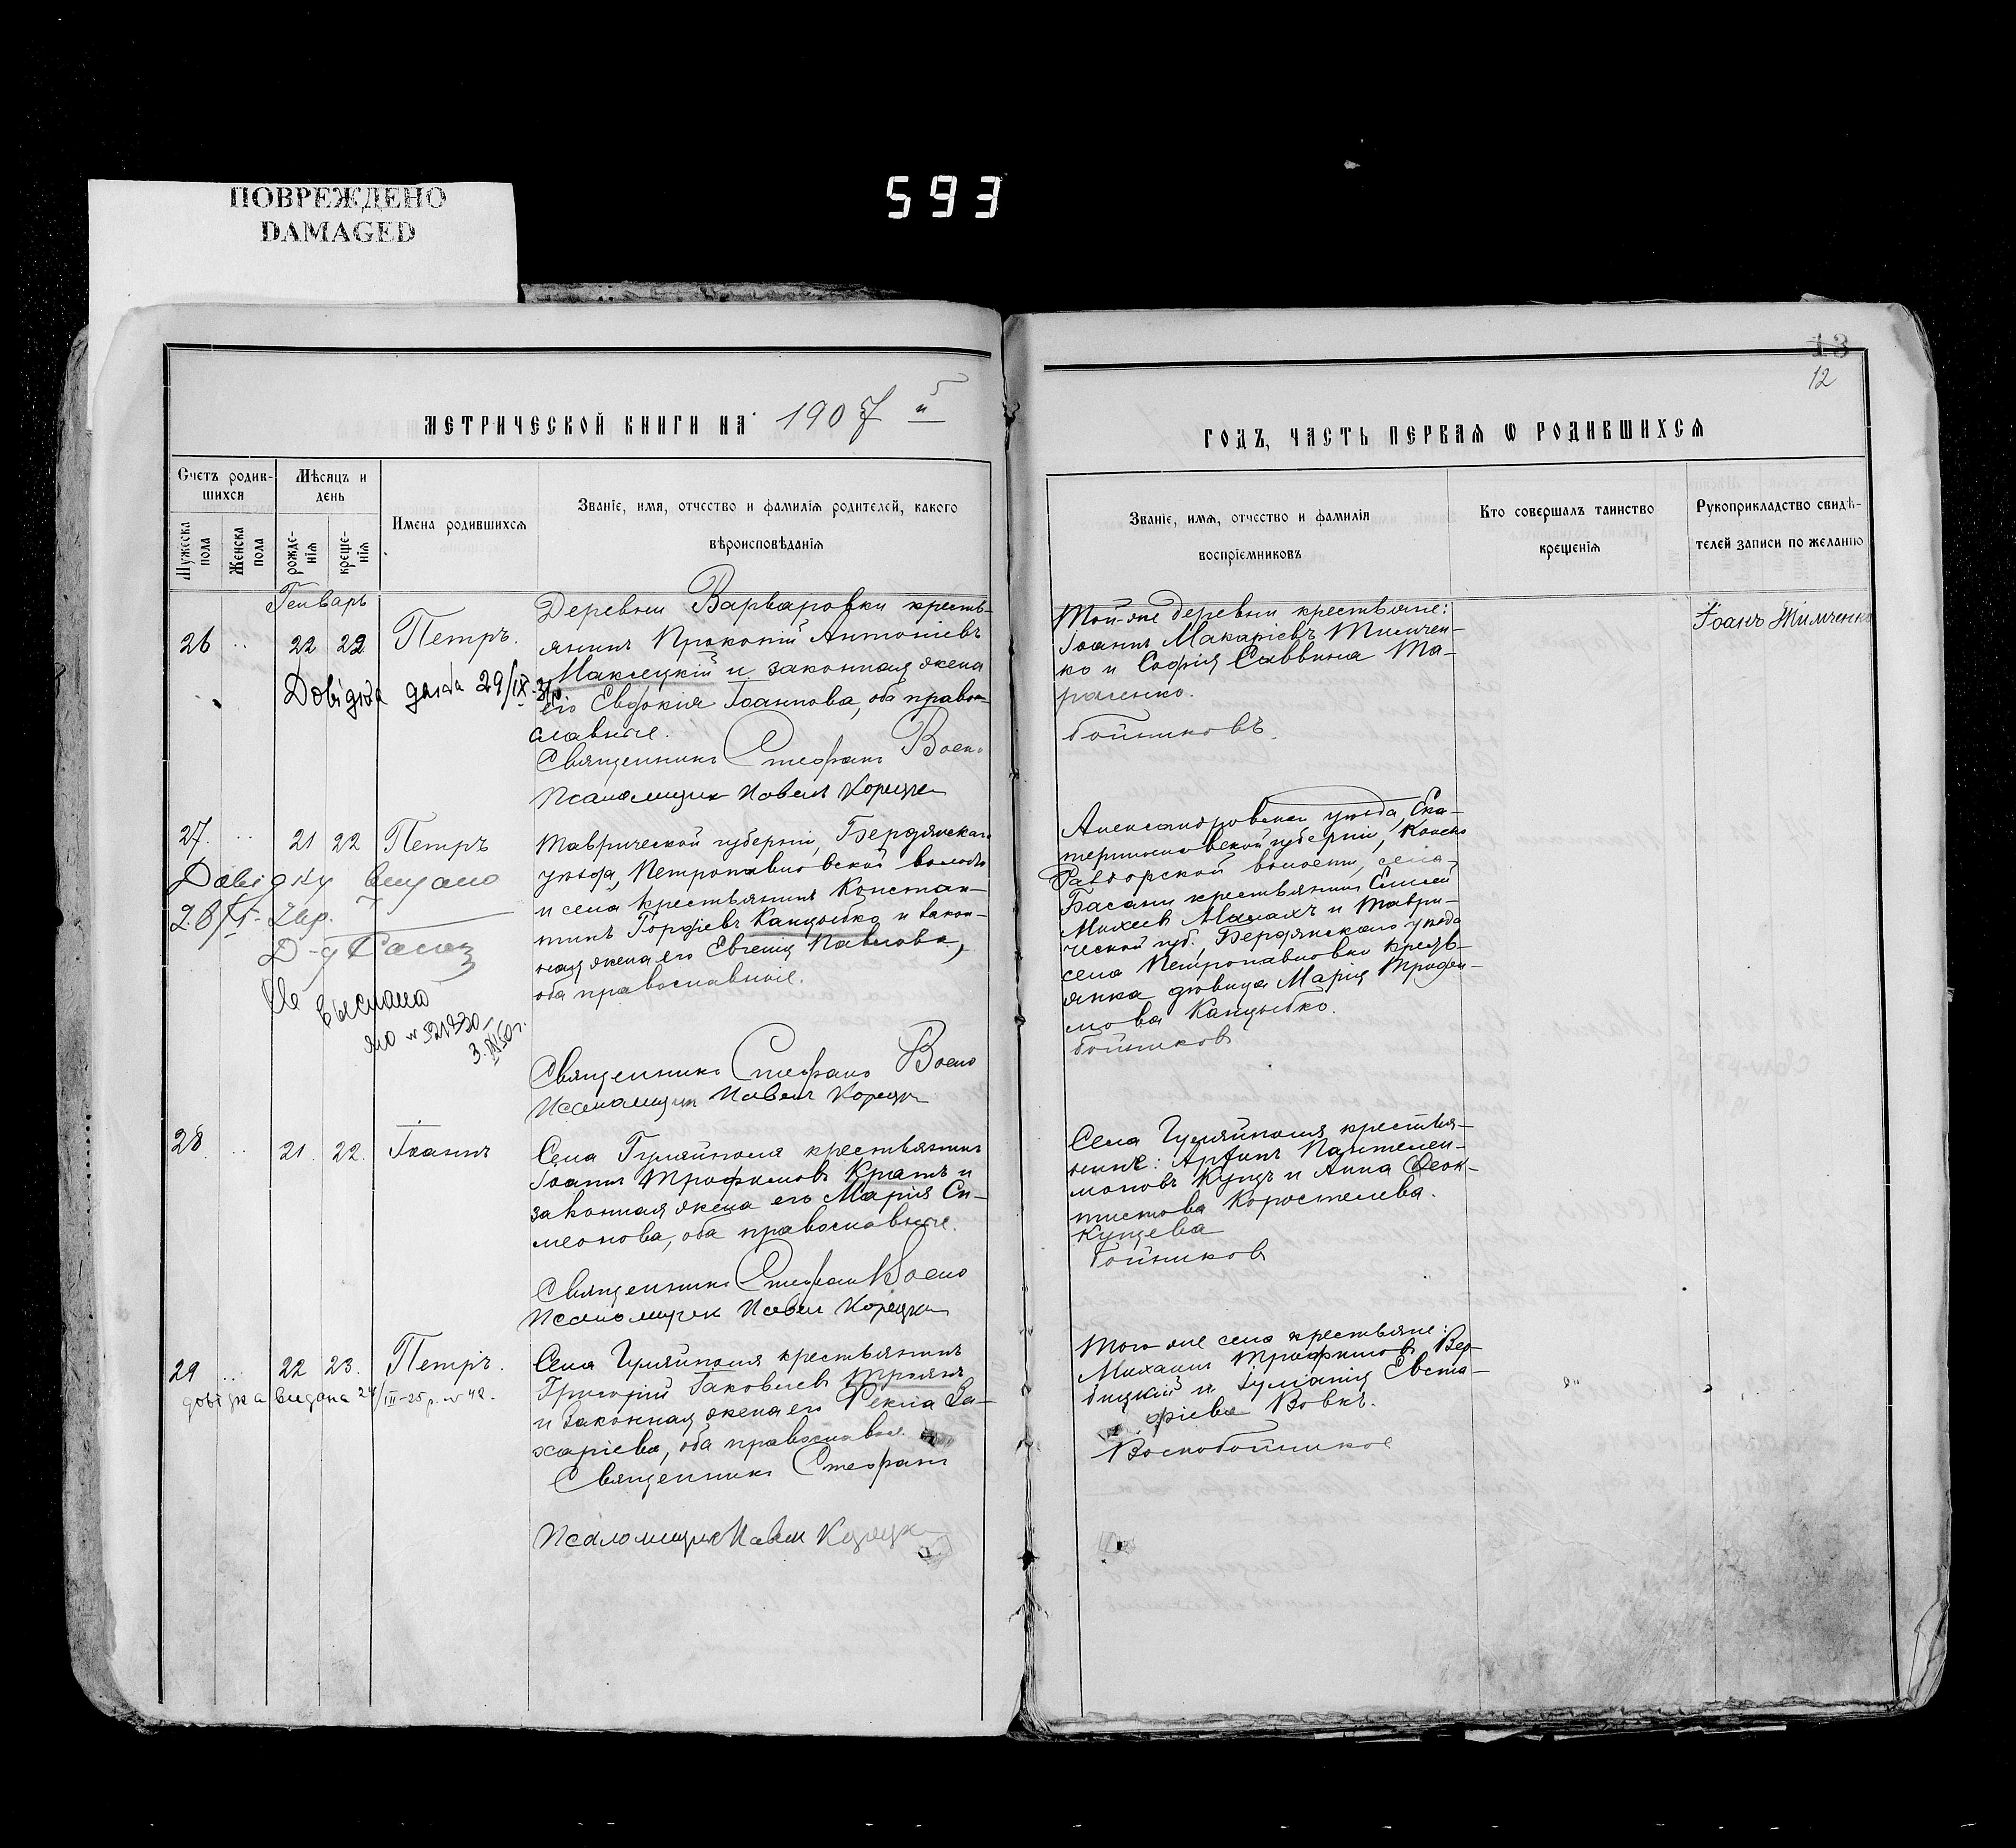 ПОВРЕЖДЕНО
DAMAGED
593
13
12
МЕТРИЧЕСКОЙ КНИГИ НА 1907 й
ГОДЪ, ЧАСТЬ ПЕРВАЯ Ѡ РОДИВШИХСЯ
Счетъ родив-
шихся
Мѣсяцъ и
день
Мужеска
пола
Женска
пола
рожде-
нія
креще-
нія
Имена родившихся
Званіе, имя, отчество и фамилія родителей, какого
вѣроисповѣданія
Званіе, имя, отчество и фамилія
воспріемниковъ
Кто совершалъ таинство
крещенія
Рукоприкладство свидѣ-
телей записи по желанію
Генварь
26 .. 22 22 Петръ.
Деревни Варваровки кресть-
янинъ Прокопій Антоніевъ
и законная жена
его Евфокія Іоаннова, оба право-
славные.
Священникъ Стефанъ Воско
Псаломщик Павелъ Корецки
Той-же деревни крестьяне:
Іоаннъ Макаріевъ Тимчен-
ко и Софія Саввина Та-
раненко.
бойниковъ.
Іоанъ Тимченко
27. .. 21 22 Петръ
Довідку видано
Таврической губерніи, Бердянскаго
уѣзда, Петропавловской волости
и села крестьянинъ Констан-
тинъ Гордіевъ Канцыбко и закон-
ная жена его Евгенія Павлова,
оба православные.
выслана
Священникъ Стефанъ Воско
Псаломщик Павелъ Корецки
Александровскаго уѣзда, Ека-
теринославской губерніи, Конско
Раздорской волости, села
Басани крестьянинъ
Михеев Малахъ и Таври-
ческой губ., Бердянскаго уѣзда
села Петропавловки кресть-
янка дѣвица Марія Трофи-
мова Канцыбко.
бойников
28. .. 21. 22. Іоаннъ
Села Гуляйполя крестьянинъ
Іоаннъ Трофимовъ Кратъ и
законная жена его Марія Си-
меонова, оба православные.
Священникъ Стефан Воско
Псаломщик Павел Корецки
Села Гуляйполя крестья-
не: Пантелей-
моновъ Купъ и Анна Ѳеок-
тистова Коростелева.
Купцева
бойников
29 ... 22 23. Петръ.
довідка видана 24/III-25 р. № 42.
Села Гуляйполя крестьянинъ
Григорій Іаковлевъ Троянъ
и законная жена его Ѳекла За-
харіева, оба православные.
Священникъ Стефанъ
Псаломщик Павел
Того же села крестьяне:
Михаилъ Трофимовъ Вер-
бицкій и Іуліанія Евста-
фіева Вовкъ.
Воскобойников